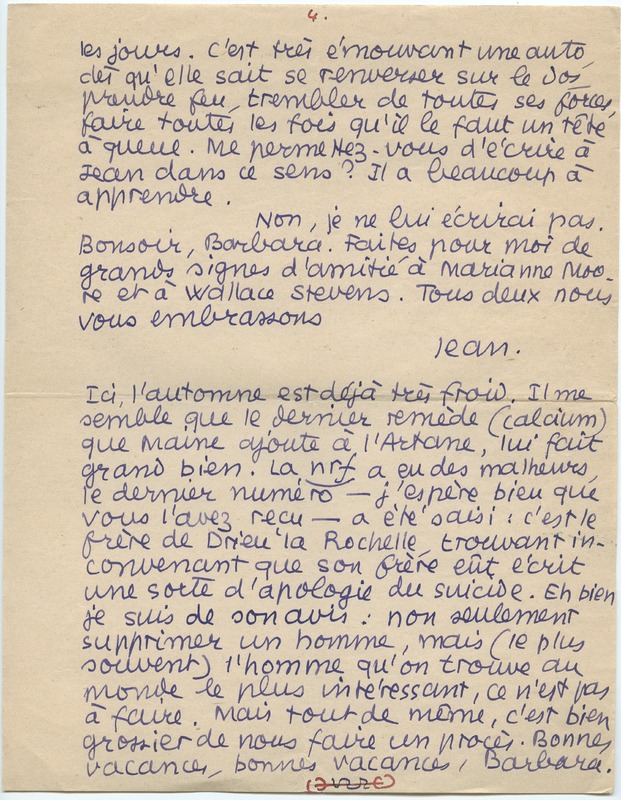 4.
les jours. C'est très émouvant une auto,
dès qu'elle sait se renverser sur le dos,
prendre feu, trembler de toutes ses forces,
faire toutes les fois qu'il le faut un tête
à queue. Me permettez-vous d'écrire à
Jean dans ce sens? Il a beaucoup à
apprendre.
Non, je ne lui écrirai pas.
Bonsoir, Barbara. Faites pour moi de
grands signes d'amitié à Marianne Moo-
re et à Wallace Stevens. Tous deux nous
vous embrassons
Jean.
Ici, l'automne est déjà très froid. Il me
semble que le dernier remède (calcium)
que Maine ajoute à l'Artane, lui fait
grand bien. La nrf a eu des malheurs,
le dernier numéro — j'espère bien que
vous l'avez reçu — a été saisi: c'est le
frère de Drieu la Rochelle, trouvant in-
convenant que son frère eût écrit
une sorte d'apologie du suicide. Eh bien
je suis de son avis: non seulement
supprimer un homme, mais (le plus
souvent) l'homme qu'on trouve au
monde le plus intéressant, ce n'est pas
à faire. Mais tout de même, c'est bien
grossier de nous faire un procès. Bonnes
vacances, bonnes vacances, Barbara.